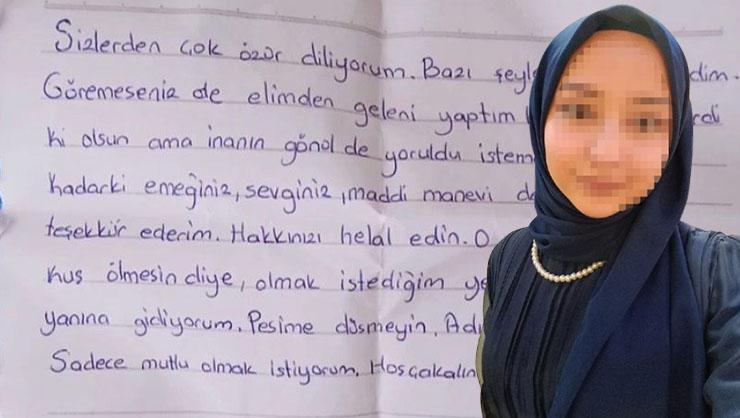 Sizlerden çok özür diliyorum. Bazı
Göremeseniz de elimden geleni yaptım
ki olsun ama inanın gönül de yoruldu
kadarki emeğiniz, sevginiz, maddi manevi
teşekkür ederim. Hakkınızı helal edin. O
kuş ölmesin diye, olmak istediğim
yanına gidiyorum. Peşime düşmeyin.
Sadece mutlu olmak istiyorum. Hoşçakalın